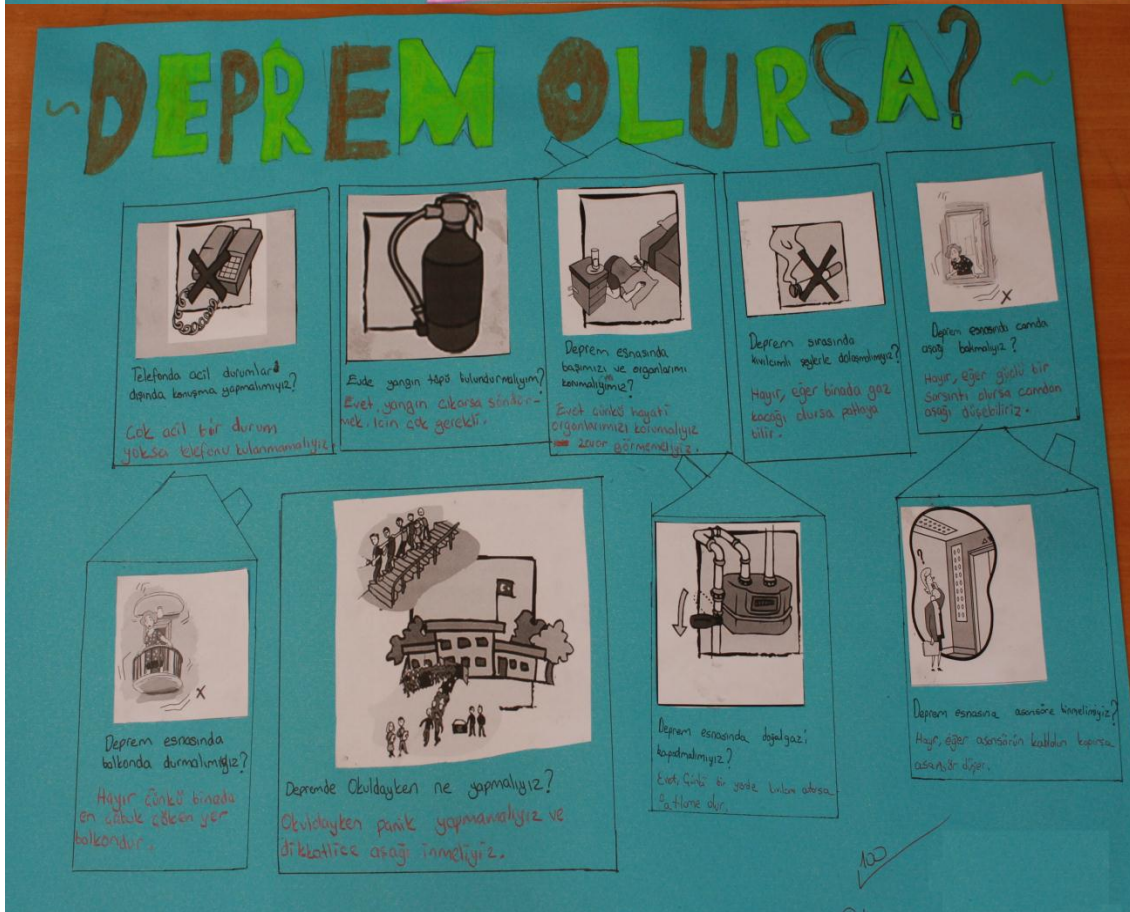 ~DEPREM OLURSA?~
Telefonda acil durumlar
dışında konuşma yapmalımıyız?
Çok acil bir durum
yoksa telefonu kulanmamalıyız
Evde yangın tüpü bulundurmalıyım?
Evet, yangın çıkarsa söndür-
mek için çok gerekli.
Deprem esnasında
başımızı ve organlarımı
korumalıyımız?
Evet çünkü hayati
organlarımızı korumalıyız
zarar görmemeliyiz.
Deprem sırasında
kıvılcımlı şeylerle dolaşmalımıyız?
Hayır, eğer binada gaz
kaçağı olursa patlaya
bilir.
Deprem esnasında camda
aşağı bakmalıyız?
Hayır, eğer güçlü bir
sarsıntı olursa camdan
aşağı düşebiliriz.
Deprem esnasında
balkonda durmalımıyız?
Hayır çünkü binada
en çabuk çöken yer
balkondur.
Depremde Okuldayken ne yapmalıyız?
Okuldayken panik yapmamalıyız ve
dikkatlice aşağı inmeliyiz.
Deprem esnasında doğalgazı
kapatmalımıyız?
Evet, Çünkü bir yerde
olur.
Deprem esnasına asansöre binmelimiyiz?
Hayır, eğer asansörün kabloları koparsa
asansör düşer.
100